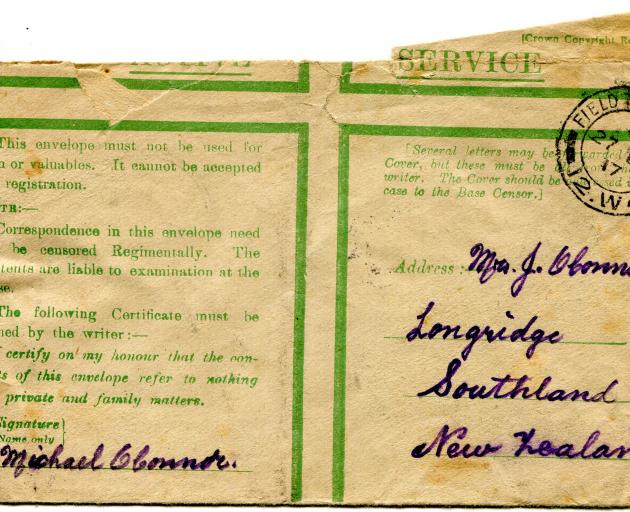 [Crown Copyright Re
ACTIVE SERVICE
This envelope must not be used for
n or valuables. It cannot be accepted
registration.
TE:—
Correspondence in this envelope need
be censored Regimentally. The
tents are liable to examination at the
se.
The following Certificate must be
ned by the writer:—
I certify on my honour that the con-
ts of this envelope refer to nothing
private and family matters.
Signature
Name only
Michael O'Connor.
[Several letters may be forwarded
Cover, but these must be
writer. The Cover should be
case to the Base Censor.]
FIELD
17
Address:— Mrs. J. O'Conno
Longridge
Southland
New Zealan